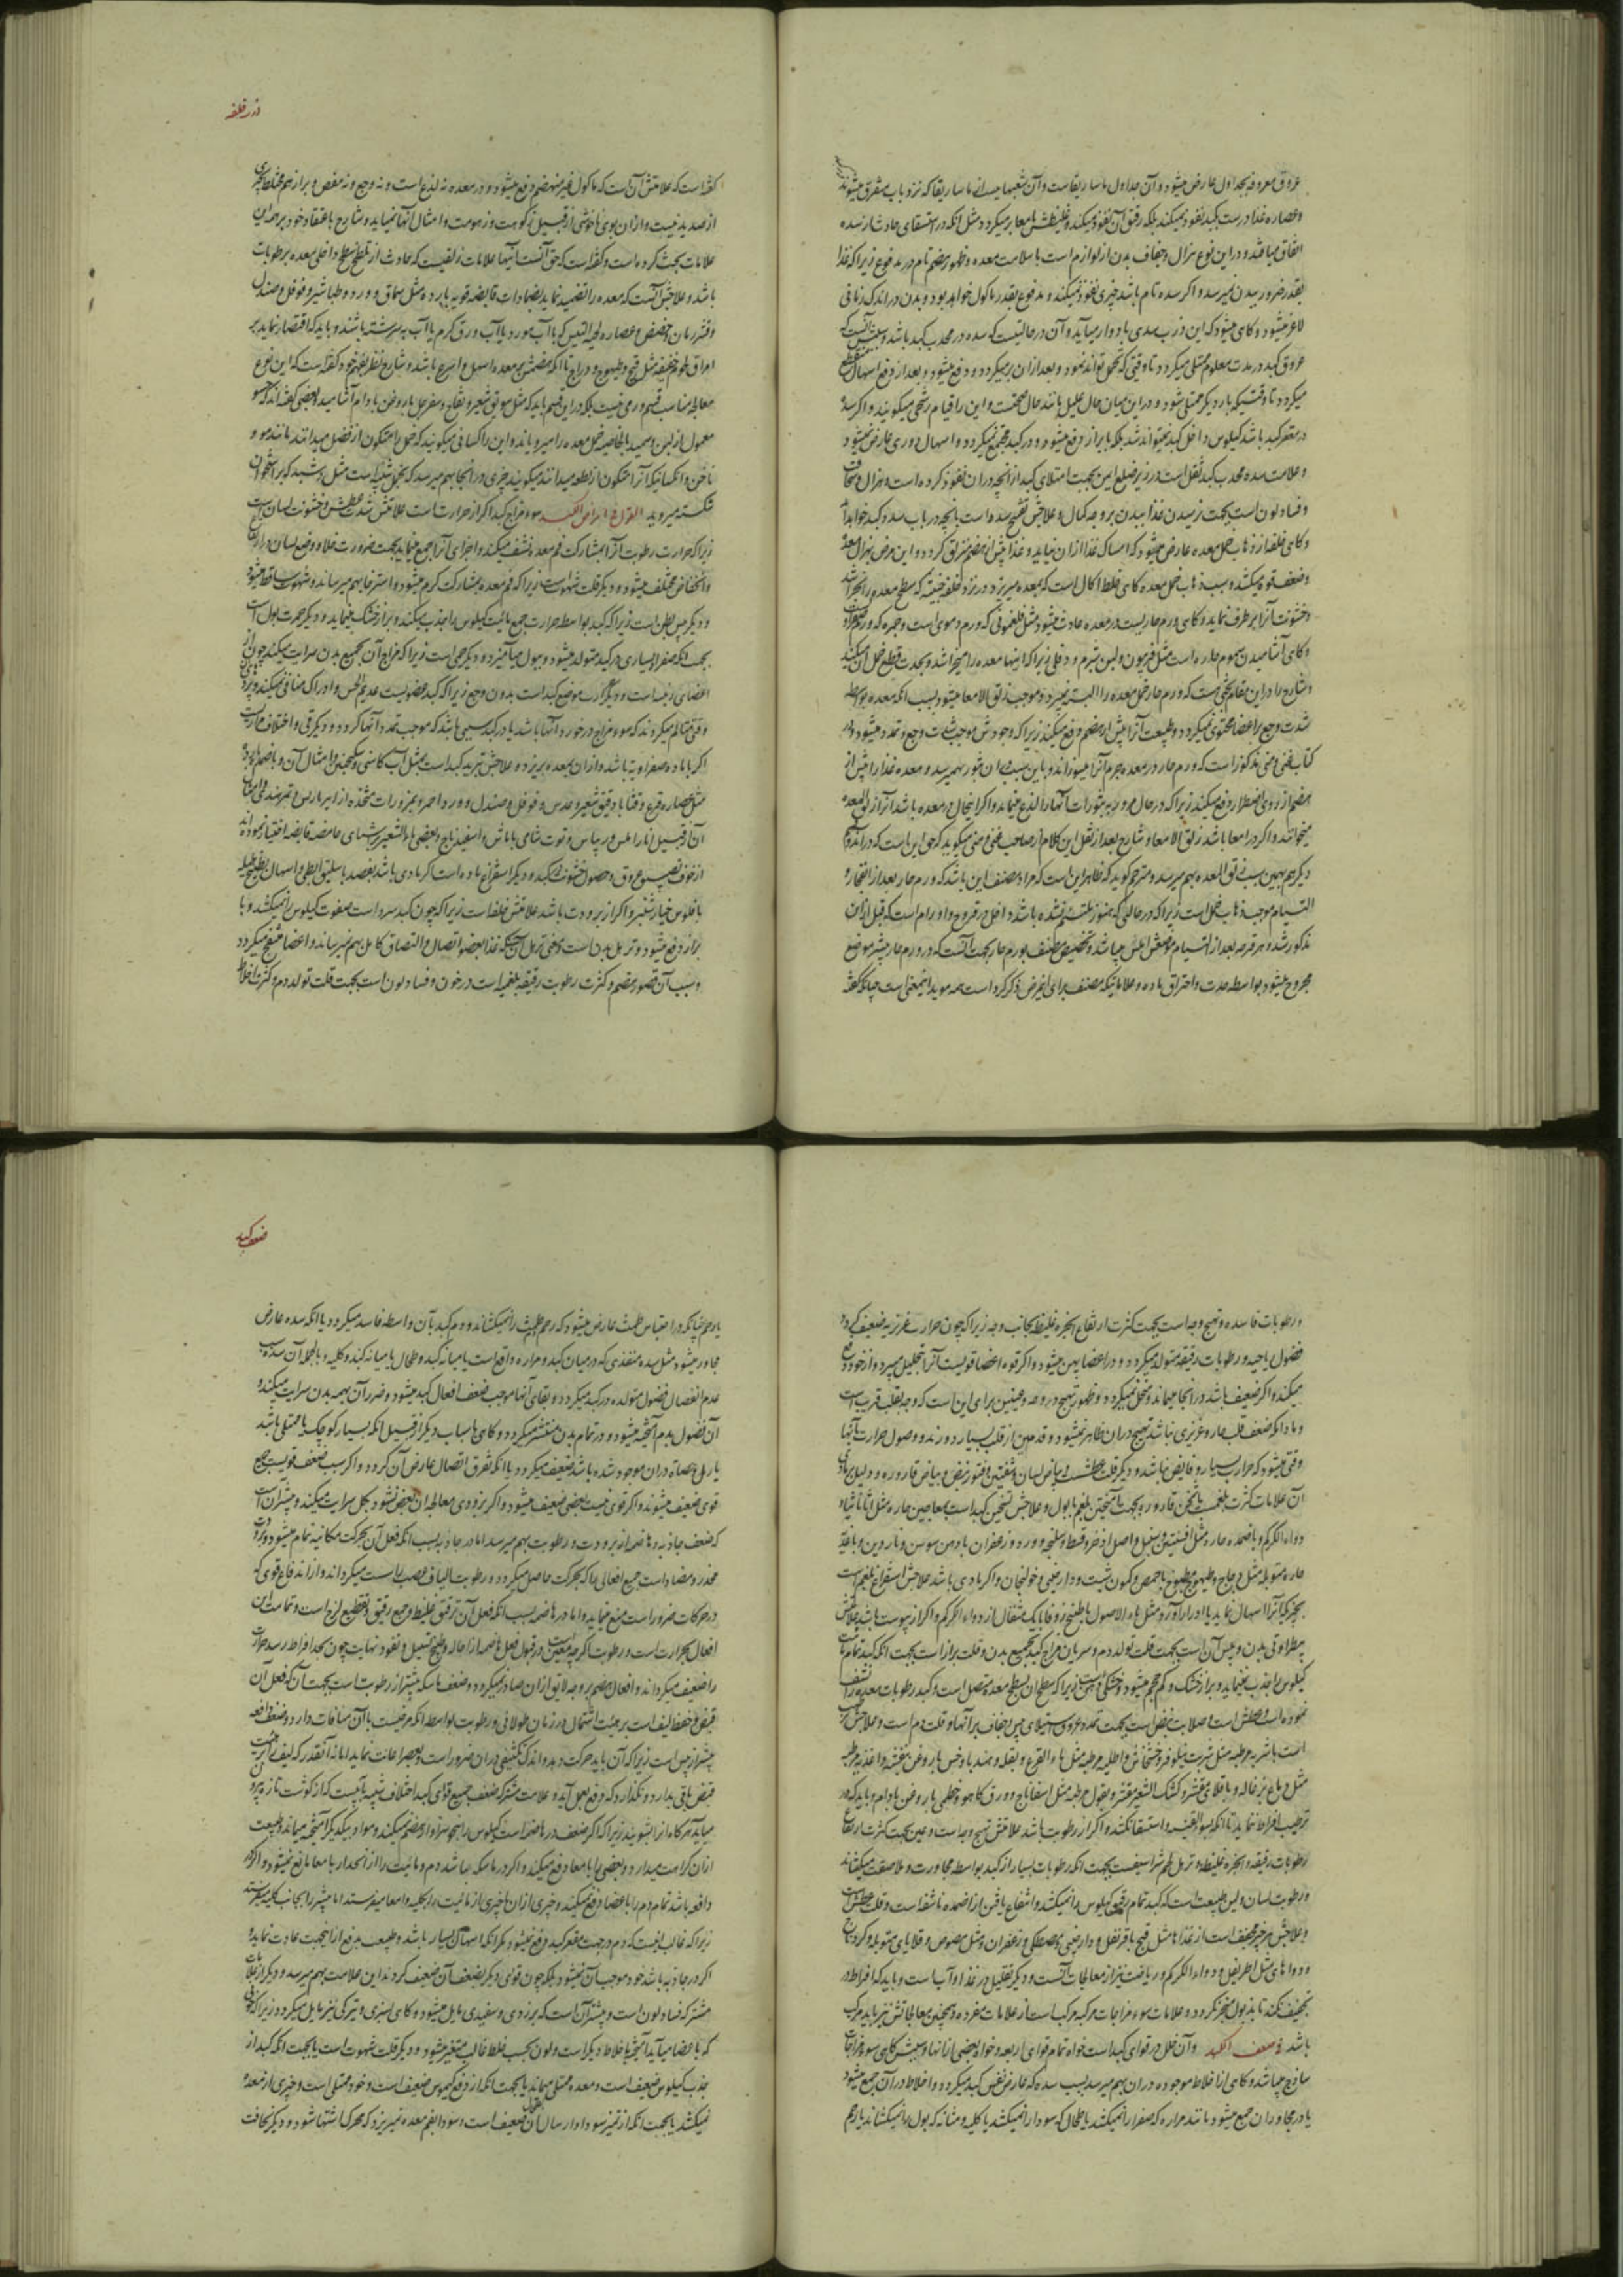 در خلفه
عروق معروفه بجداول عارض میشود و آن جداول ماساریقاست و آن شعبها میسانی ماساریقا که نزد باب متفرق میشوند
و عصاره غذا درست بکبد نفوذ نمیکند بلکه رقیق آن نفوذ میکند و غلیظش بامعا برمیگردد مثل آنکه در استسقای حادث از سده
اتفاق میافتد و در این نوع هزال و جفاف بدن از لوازم است با سلامت معده و ظهور هضم تام در مدفوع زیرا که غذا
بقدر ضرور ببدن نمیرسد و اگر سده تام باشد چیزی نفوذ نمیکند و مدفوع بقدر ماکول خواهد بود و بدن در اندک زمانی
لاغر میشود و گاهی میشود که این ذرب سدی بادوار میآید و آن در حالتیست که سده در محدب کبد باشد و سببش آنست که
عروق کبد در مدت معلوم ممتلی میگردد تا وقتی که تحمل تواند نمود و بعد از آن برمیگردد و دفع میشود و بعد از دفع اسهال منقطع
میگردد تا وقتیکه بار دیگر ممتلی شود و در این میان حال علیل مانند حال صحتست و این را قیام رنحی میگویند و اگر سده
در مقعر کبد باشد کیلوس داخل کبد نمیتواند شد بلکه با براز دفع میشود و در کبد مجتمع نمیگردد و اسهال دوری عارض نمیشود
و علامت سده محدب کبد ثقل است در زیر ضلع ایمن بجهت امتلای کبد از آنچه در آن نفوذ کرده است و هزال و نحافت
و فساد لون است بجهت نرسیدن غذا ببدن بر وجه کمال و علاجش تفتیح سده است بانچه در باب سده کبد خواهد آمد
و گاهی خلفه از ذهاب خمل معده عارض میشود که امساک غذا از آن نیاید و غذا پیش از هضم منزلق گردد و این مرض بهزال معده
و ضعف قوه میکشد و سبب ذهاب خمل معده گاهی خلط اکال است که بمعده میریزد
و خشونت آنرا برطرف نماید و گاهی ورم حاریست در معده حادث میشود مثل فلغمونی که ورم دموی است و حمره که ورم صفراوی
و گاهی آشامیدن سموم حاره است مثل فربیون و لبن شبرم و دفلی زیرا که اینها معده را میخراشد و بحدت قطع خمل آن میکند
و شارح را در این مقام بحثی هست که ورم حار خمل معده را البته نمیبرد و موجب زلق الامعا میشود بسبب آنکه معده بواسطه
شدت وجع بر اعضا محتوی نمیگردد و طبیعت آنرا پیش از هضم دفع میکند زیرا که وجودش موجب شدت وجع و تمدد میشود و در
کتاب غنی منی مذکور است که ورم حار در معده جرم آنرا میسوزاند و باین سبب در آن بثور بهم میرسد و معده غذا را پیش از
هضم از روی اضطرار دفع میکند زیرا که در حال مرور به بثورات آنها را لذع مینماید و اگر این حال در معده باشد آنرا زلق المعده
میخوانند و اگر در امعا باشد زلق الامعا و شارح بعد از نقل این کلام از صاحب غنی منی میگوید که حق این است که در اورام
دیگر هم بهمین سبب زلق المعده بهم میرسد و مترجم گوید که ظاهر این است که مراد مصنف این باشد که ورم حار بعد از انفجار و
التیام موجب ذهاب خمل است زیرا که در حالتی که هنوز ملتئم نشده باشد داخل در قروح و اورام است که قبل از این
مذکور شد و هر قرحه بعد از التیام موضعش املس میباشد و تخصیص مصنف بورم حار بجهت آنست که در ورم حار بیشتر موضع
مجروح میشود بواسطه حدت و احتراق ماده و علاماتیکه مصنف برای این مرض ذکر کرده است همه موید این معنی است چنانکه گفته
گفته است که علامتش آن است که ماکول غیر منهضم دفع میشود و در معده نه لذع است و نه وجع و نه مغص و براز هم مخلط بچیزی
از صدید نیست و از آن بوی ناخوشی از قبیل زنکومت و زهومت و امثال آنها نمیآید و شارح باعتقاد خود بر همه این
علامات بحث کرده است و گفته است که حق آنست که اینها علامات زلقیست که حادث از تملس سطح داخلی معده برطوبات
باشد و علاجش آنست که معده را تضمید نماید بضمادات قابضه قویه بارده مثل سماق و ورد و طباشیر و فوفل و صندل
و قشر رمان و حضض و عصاره لحیة التیس که با آب مورد یا آب ورق کرم یا آب به سرشته باشند و باید که اقتصار نماید بر
امراق لحوم خفیفه مثل قبج و طیهوج و دراج تا آنکه هضمش بر معده اسهل و اسرع باشد و شارح نظر بفهم خود گفته است که این نوع
معالجه مناسب قسم ورمی نیست بلکه در این قسم باید که مثل سویق شعیر و تفاح و سفرجل با روغن بادام آشامید و بعضی گفته اند که حسو
معمول از لبن و سمید بالخاصیه خمل معده را میرویاند و این را کسانی میگویند که خمل را متکون از فضل میدانند مانند مو و
ناخن و آنکسانیکه آنرا متکون از نطفه میدانند میگویند چیزی در آنجا بهم میرسد که بخمل شبیه است مثل دشبد که بر استخوان
شکسته میروید القول فی امراض الکبد سوء مزاج کبد اگر از حرارت است علامتش شدت عطش و خشونت لسان است
زیرا که حرارت رطوبت آنرا بمشارکت فم معده نشف میکند و اجزای آنرا جمع مینماید بجهت ضرورت خلا و وضع لسان در ارتفاع
و انخفاض مختلف میشود و دیگر قلت شهوت است زیرا که فم معده بمشارکت گرم میشود و استرخا بهم میرساند و شهوت ساقط میشود
و دیگر یبس بطن است زیرا که کبد بواسطه حرارت جمیع مائیت کیلوس را جذب میکند و براز خشک مینماید و دیگر حمرت بول است
بجهت آنکه صفرا بسیاری در کبد متولد میشود و ببول میآمیزد و دیگر حمی است زیرا که مزاج آن بجمیع بدن سرایت میکند چون از
اعضای رئیسه است و دیگر حرارت موضع کبد است بدون وجع زیرا که کبد عضویست عدیم الحس
اگر با ماده صفراویه باشد و از آن بمعده بریزد و علاجش تبرید کبد است بمثل آب کاسنی و سکنجبین و امثال آن و باضمده بارده
مثل عصاره قرع و قثا با دقیق شعیر و عدس و فوفل و صندل و ورد احمر و بمزورات متخذه از امبرباریس و تمرهندی و امثال
ازخوف تضیق عروق و حصول خشونت در کبد و دیگر استفراغ ماده است اگر مادی باشد بفصد باسلیق ابطی و اسهال بطبیخ هلیله
با فلوس خیارشنبر و اگر از برودت باشد علامتش خلفه است زیرا که چون کبد سرد است صفوت کیلوس را نمیکشد و با
براز دفع میشود و ترهل بدن است
و سبب آن قصور هضم و کثرت رطوبت رقیقه بلغمیه است در خون و فساد لون است بجهت قلت تولد دم و کثرت اخلاط
ضعف کبد
و رطوبات فاسده و تهیج وجه است بجهت کثرت ارتفاع ابخره غلیظه بجانب وجه زیرا که چون حرارت غریزیه ضعیف گردد
فضول ریاحیه و رطوبات رقیقه متولد میگردد و در اعضا پهن میشود و اگر قوه اعضا قویست آنرا بتحلیل میبرد و از خود دفع
میکند و اگر ضعیف باشد در آنجا میماند و متحلل نمیگردد و ظهور تهیج در وجه و عینین برای این است که وجه بقلب قریب است
و مادامکه ضعف قلب و حار غریزی نباشد تهیج در آن ظاهر نمیشود و قدمین از قلب بسیار دورند و وصول حرارت بآنها
وقتی میشود که حرارت بسیار و فایض باشد و دیگر قلت عطشست و بیاض لسان و شفتین و فتور نبض و بیاض قاروره
دواء الکرکم و باضمده حاره مثل افسنتین و سنبل و اصل اذخر و قسط و سلیخه و ورد و زعفران با دهن سوسن و ناردین و باغذیه
حاره متوبله مثل دجاج و طیهوج مطبوخ با حمص و کمون و شبت و دارچینی و خولنجان و اگر مادی باشد علاجش استفراغ بلغم است
بچیزی که آنرا اسهال نماید یا ادرار آورد مثل ماء الاصول یا طبیخ زوفا با یک مثقال از دواء الکرکم و اگر از یبوست باشد علامتش
کیلوس را جذب مینماید و براز خشک و کم حجم میشود
است باشربه مرطبه مثل شربت نیلوفر و خشخاش و اطلیه مرطبه مثل ماء القرع و بقله و هندبا و خس با روغن بنفشه و اغذیه مرطبه
مثل دماغ بزغاله و باقلای مقشر و کشک الشعیر مقشر و بقول مرطبه مثل اسفاناج و ورق کاهو و خطمی با روغن بادام و باید که در
ترطیب افراط ننماید تا آنکه بسوء القنیه و استسقا نکشد و اگر از رطوبت باشد علامتش تهیج وجه است و عین بجهت کثرت ارتفاع
رطوبات رقیقه و ابخره غلیظه و ترهل لحم شراسیفست بجهت آنکه رطوبات بسیار از کبد بواسطه مجاورت و ملاصقت میکشاند
و علاجش هر چیز مجفف است از غذاها مثل قبج با قرنفل و دارچینی و مصطکی و زعفران و مثل مصوص و قلایای متوبله و کردناج
و دواهای مثل اطریفل و دواء الکرکم و ریاضت نیز از معالجات آنست و دیگر تقلیل در غذا و آب است و باید که افراط در
تجفیف نکند تا بذبول منجر نگردد و علامات سوء مزاجات مرکبه مرکب است از علامات مفرده و همچنین معالجاتش نیز باید مرکب
باشد فی ضعف الکبد و آن خلل در قوای کبد است خواه تمام قوای اربعه و خواه بعضی از آنها و سببش گاهی سوء مزاجات
ساذج میباشد و گاهی از اخلاط موجوده در آن بهم میرسد بسبب سده که عارض نفس کبد میگردد و اخلاط در آن جمع میشود
یا در مجاوران جمع میشود مانند مراره که صفرا را نمیکشد یا طحال که سودا را نمیکشد یا کلیه و مثانه که بول را نمیکشاند یا رحم
یا رحم چنانکه در احتباس طمث عارض میشود که رحم طمث را نمیکشاند و دم کبد بآن واسطه فاسد میگردد یا آنکه سده عارض
مجاور میشود مثل سده منفذی که در میان کبد و مراره واقع است یا میانه کبد و طحال یا میانه کبد و کلیه و بالجمله آن سده سبب
عدم انفصال فضول متولده در کبد میگردد و بقای آنها موجب ضعف افعال کبد میشود و ضرر آن بهمه بدن سرایت میکند و
آن فضول بدم آمیخته میشود و در تمام بدن منتشر میگردد و گاهی باسباب دیگر از قبیل آنکه بسیار کوچک یا ممتلی باشد
یا رمل و حصاة در آن موجود شده باشد ضعیف میگردد یا آنکه تفرق اتصال عارض آن گردد و اگر سبب ضعف قویست جمیع
قوی ضعیف میشوند و اگر قوی نیست بعضی ضعیف میشود و اگر بزودی معالجه آن بعض نشود بکل سرایت میکند و بیشتر آن است
که ضعف جاذبه و هاضمه از برودت و رطوبت بهم میرسد اما در جاذبه بسبب آنکه فعل آن بحرکت مکانیه تمام میشود و برودت
مخدر و مضاد است جمیع افعالی را که بحرکت حاصل میگردد و رطوبت الیاف عصب را سست میگرداند و از اندفاع قوی که
در حرکات ضرور است منع مینماید و اما در هاضمه بسبب آنکه فعل آن ترقیق غلیظ و جمع رقیق و تقطیع لزج است و تمامیت این
را ضعیف میگرداند و افعال هضم بر وجه لایق از آن صادر نمیگردد و ضعف ماسکه بیشتر از رطوبت است بجهت آنکه فعل آن
قبض و حفظ لیف است بر هیئت اشتمال در زمان طولانی و رطوبت بواسطه آنکه مرخیست با آن منافات دارد و ضعف دافعه
قبض باقی بدارد و نگذارد که دفع بعمل آید و علامت مشترکه ضعف جمیع قوای کبد اختلاف شبیه بآبیست که از گوشت تازه بیرون
میآید هرگاه آنرا بشویند زیرا که اگر ضعف در هاضمه است کیلوس را بهیچ سزاوار هضم نمیکند و مواد بیکدیگر آمیخته میماند و طبیعت
از آن کراهت میدارد و بعضی را بامعا دفع میکند و اگر در ماسکه باشد دم و مائیت را از انحدار بامعا مانع نمیشود و اگر در
دافعه باشد تمام دم را باعضا دفع نمیکند و چیزی از آن با چیزی از مائیت را بکلیه و امعا میفرستد
زیرا که غالب اینست که دم در جهت مقعر کبد دفع نمیشود مگر آنکه اسهال بسیار باشد و طبیعت بدفع از این جهت عادت نماید و
اگر در جاذبه باشد خود موجب آن نمیشود بلکه چون قوای دیگر بضعف آن ضعیف گردند این علامت بهم میرسد و دیگر از علامات
مشترکه فساد لون است و بیشتر آن است که بزردی و سفیدی مایل میشود و گاهی بسبزی و تیرگی نیز مایل میگردد زیرا که خونی
که باعضا میآید آمیخته باخلاط دیگر است و لون بحسب خلط غالب متغیر میشود و دیگر قلت شهوت است یا بجهت آنکه کبد از
جذب کیلوس ضعیف است و معده ممتلی میماند یا بجهت آنکه از دفع کیموس ضعیف است و خود ممتلی است و چیزی از معده
نمیکشد یا بجهت آنکه از تمیز سودا و ارسال آن بطحال ضعیف است و سودا بفم معده نمیریزد که محرک اشتها شود و دیگر نحافت